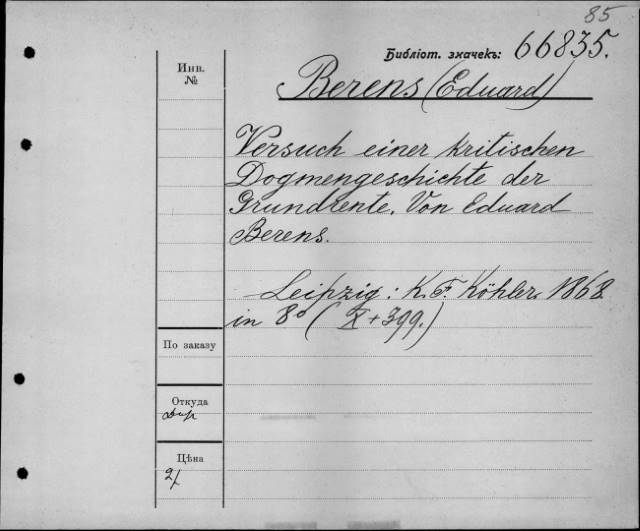 85
Библіот. значекъ: 66835.
Инв.
№
Berens (Eduard)
Versuch einer kritischen
Dogmengeschichte der
Grundrente. Von Eduard
Berens.
Leipzig: K. F. Köhler. 1868
in 8° ( X + 399.)
По заказу
Откуда
Цѣна
2/